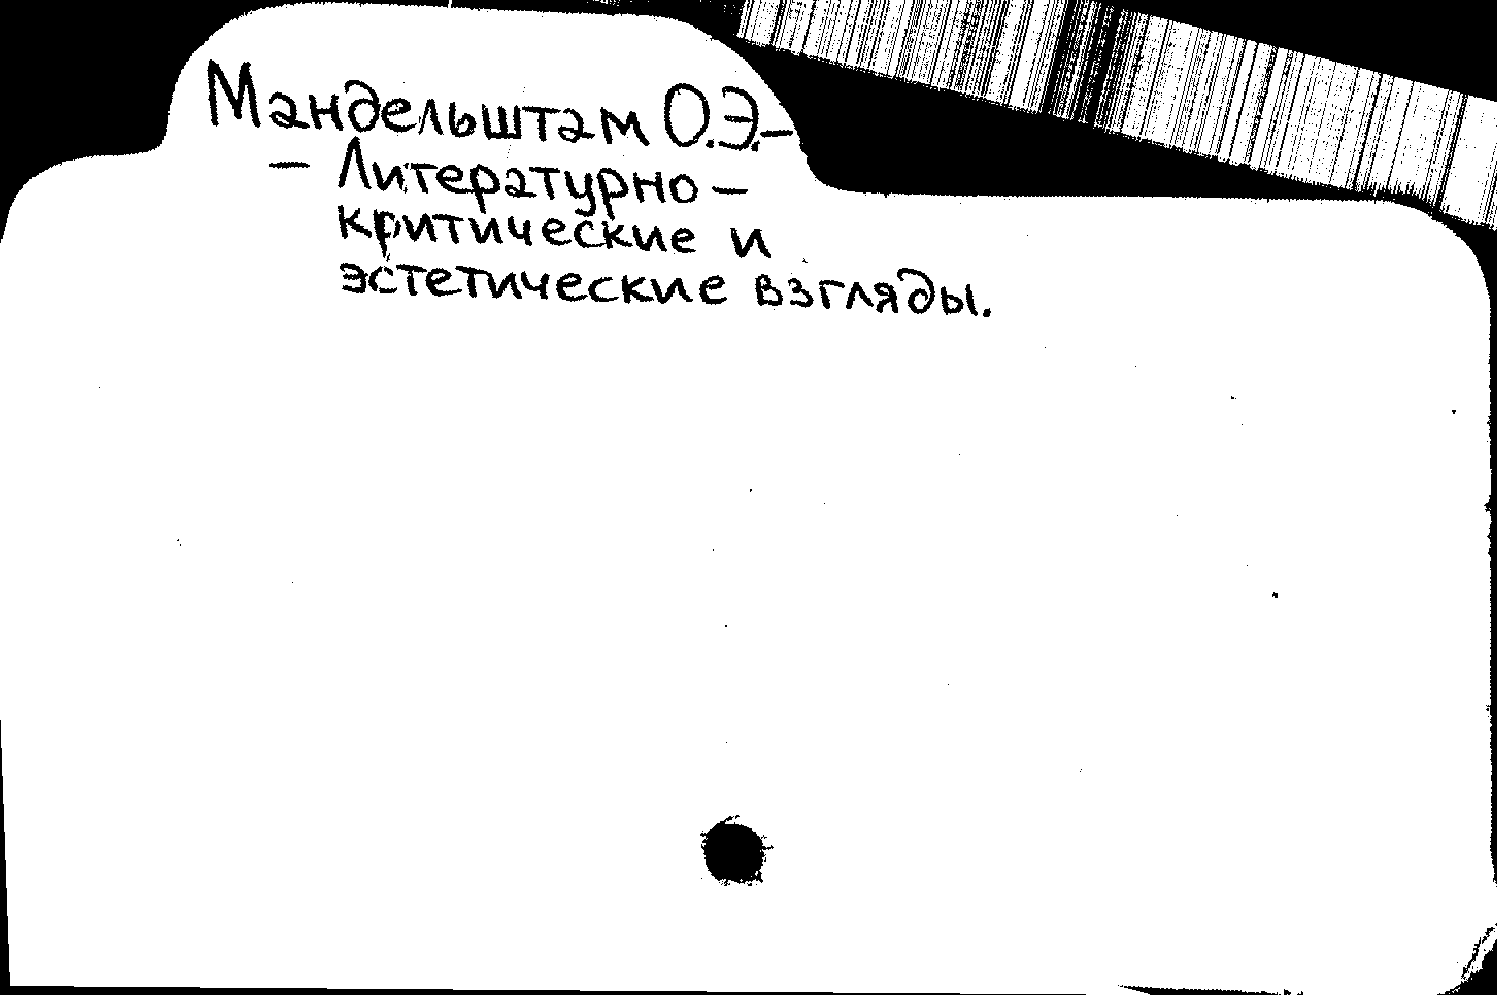 Мандельштам О.Э.—
— Литературно —
критические и
эстетические взгляды.